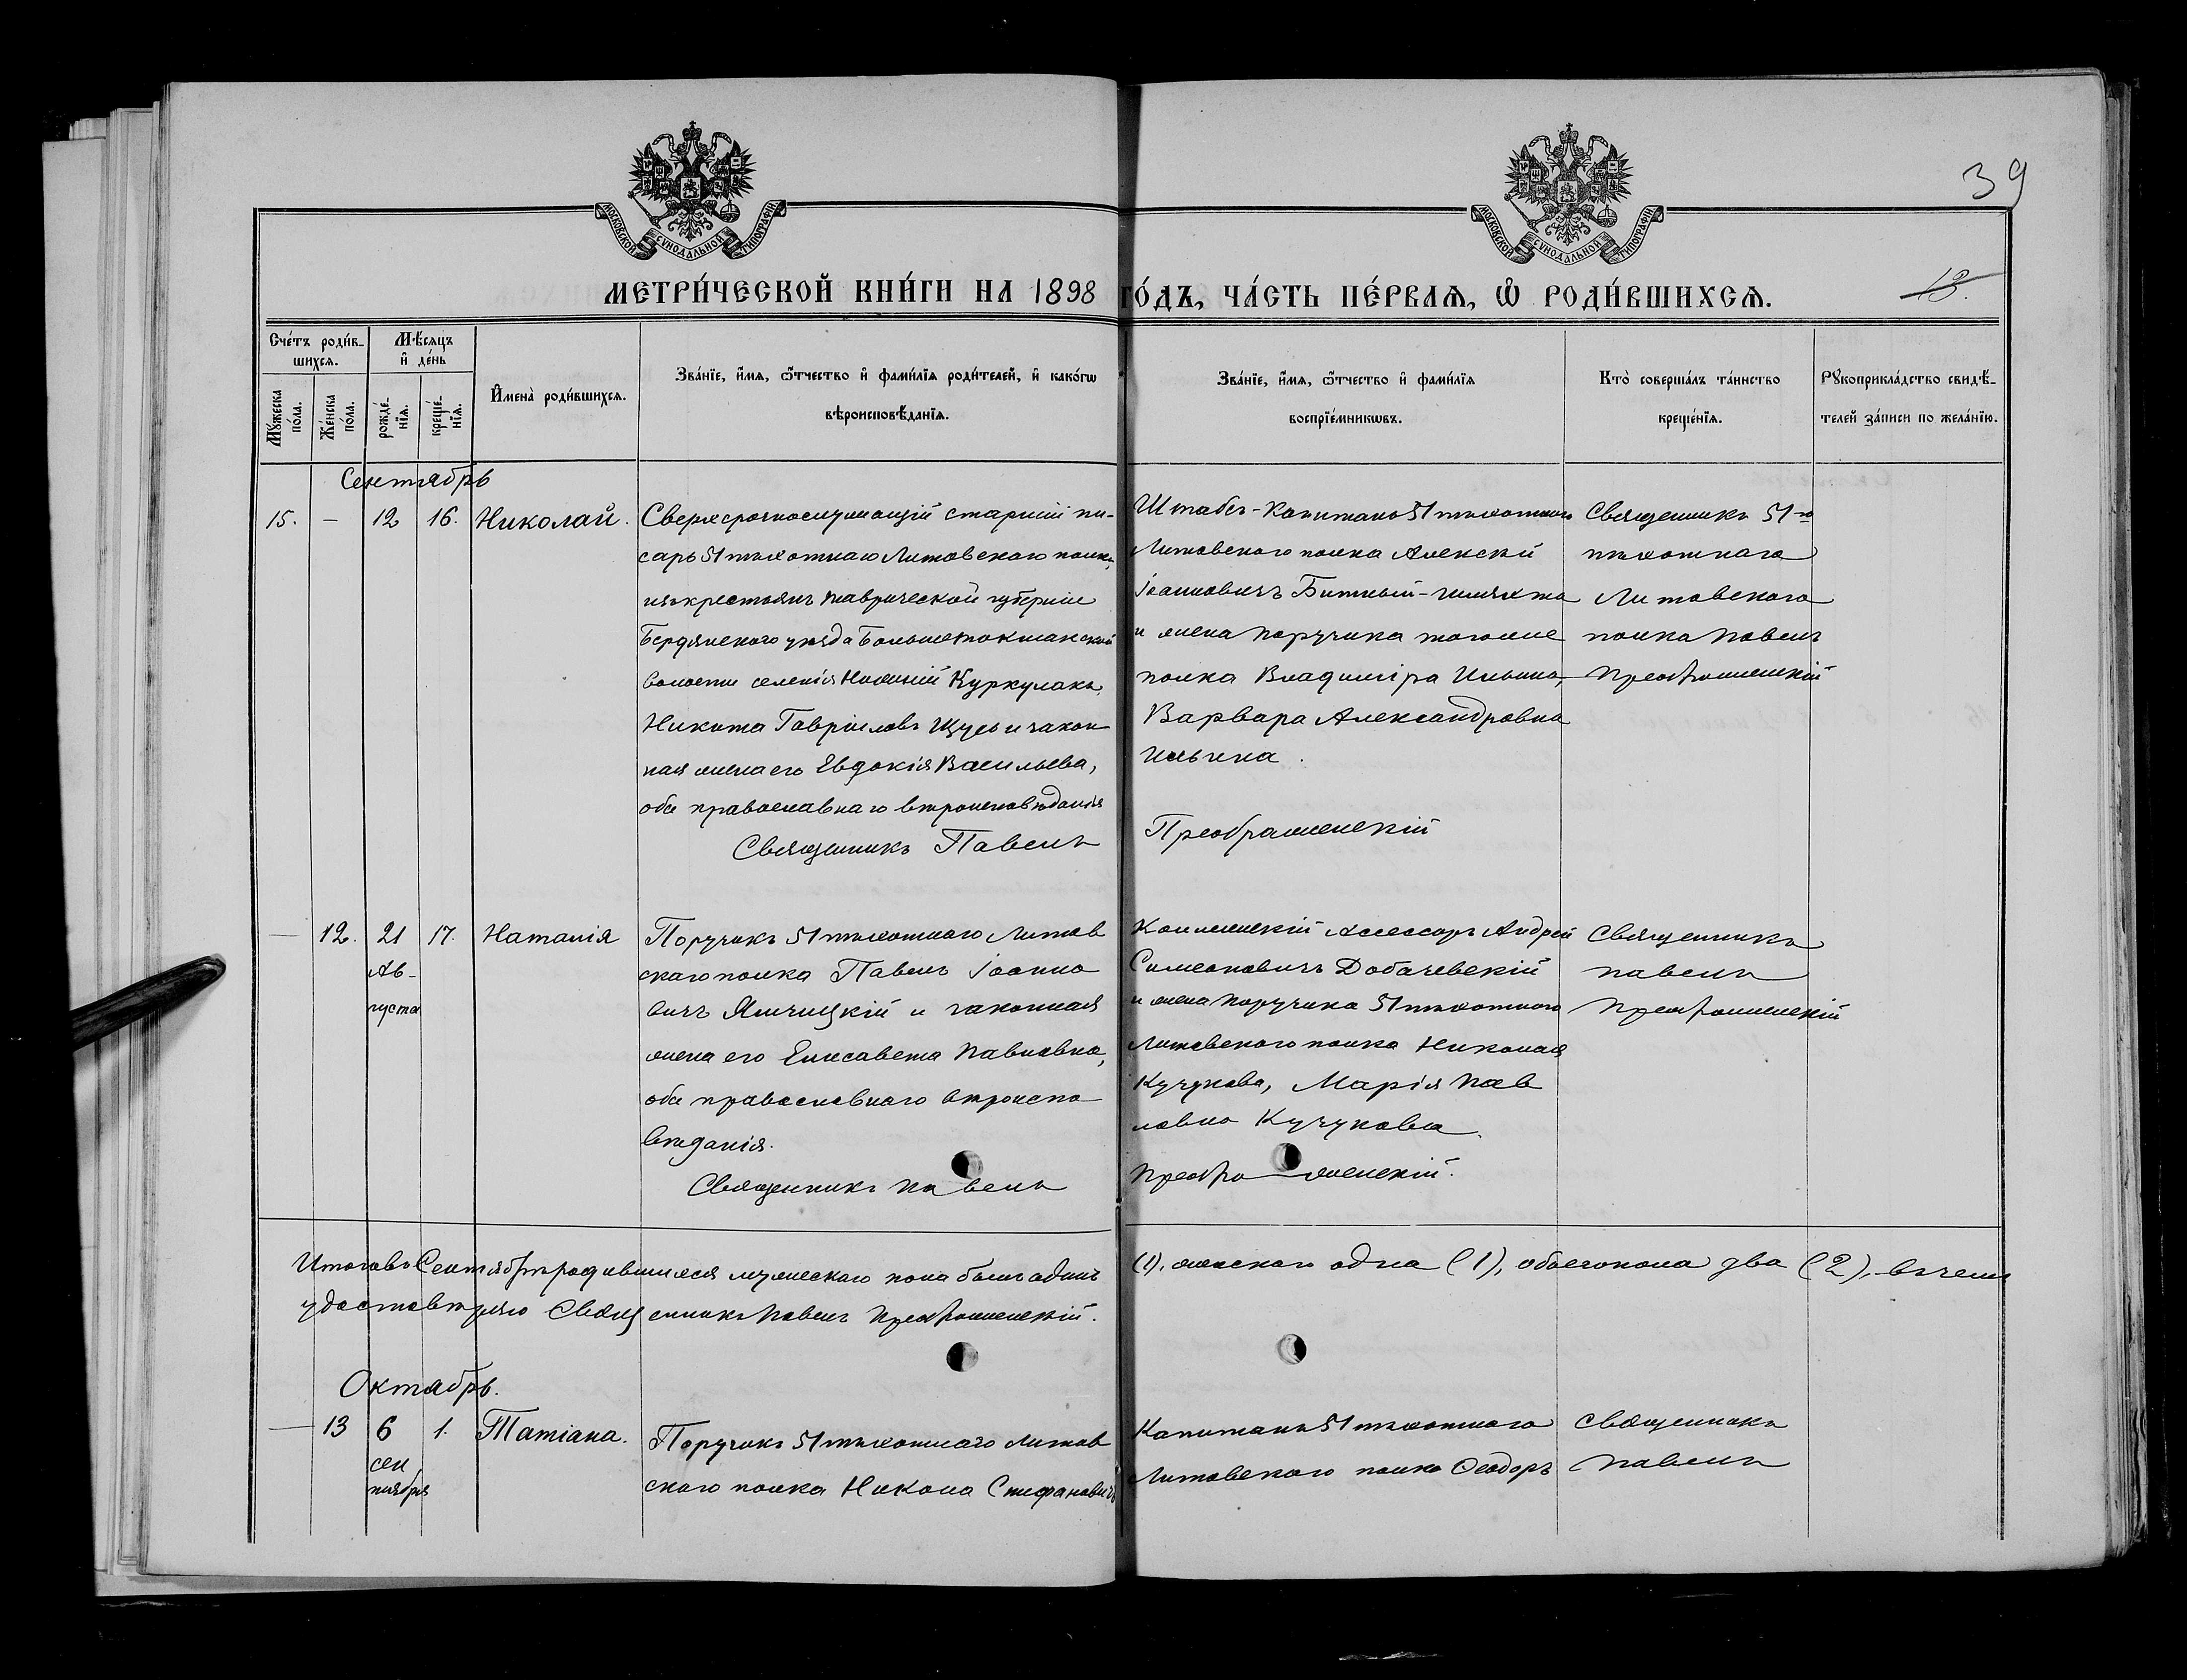 39
МОСКОВСКОЙ СѴНОДАЛЬНОЙ ТИПОГРАФІИ.
МОСКОВСКОЙ СѴНОДАЛЬНОЙ ТИПОГРАФІИ.
МЕТРИ́ЧЕСКОЙ КНИ́ГИ НА 1898 ГО́ДЪ, ЧА́СТЬ ПЕ́РВАѦ, Ѽ РОДИ́ВШИХСѦ.
13.
Сче́тъ роди́в-
шихсѧ.
Мѣ́сѧцъ
и҆ де́нь
Мꙋ́жеска
по́ла.
Же́нска
по́ла.
рожде́-
нїѧ.
креще́-
нїѧ.
И҆мена̀ роди́вшихсѧ.
Зва́нїе, и҆́мѧ, ѻ҆́тчество и҆ фами́лїѧ роди́телей, и҆ како́гѡ
вѣроисповѣ́данїѧ.
Зва́нїе, и҆́мѧ, ѻ҆́тчество и҆ фами́лїѧ
воспрїе́мникѡвъ.
Кто̀ соверша́лъ та́инство
креще́нїѧ.
Рꙋкоприкла́дство свидѣ́-
телей за́писи по жела́нїю.
Сентябрь
15. — 12 16. Николай.
Сверхсрочнослужащій старшій пи-
сарь 51 пѣхотнаго Литовскаго полка,
изъ крестьянъ Таврической губерніи
Бердянскаго уѣзда Большетокмакской
волости селенія Нижній Куркулакъ,
Никита Гавріиловъ Щусь и закон
ная жена его Евдокія Васильева,
оба православнаго вѣроисповѣданія
Священникъ Павелъ
Штабсъ-Капитанъ 51 пѣхотнаго
Литовскаго полка Алексѣй
Іоанновичъ Битный-Шляхто
и жена поручика тогоже
полка Владиміра Ильина,
Варвара Александровна
Ильина.
Преображенскій
Священникъ 51-го
пѣхотнаго
Литовскаго
полка Павелъ
Преображенскій
— 12. 21 17. Наталія
Ав-
густа
Поручикъ 51 пѣхотнаго Литов
скаго полка Павелъ Іоанно
вичъ Яличицкій и законная
жена его Елисавета Павловна,
оба православнаго вѣроиспо
вѣданія.
Священникъ Павелъ
Коллежскій Ассессоръ Андрей
Симеоновичъ Добачевскій
и жена поручика 51 пѣхотнаго
Литовскаго полка Николая
Кучукова, Марія Пав
ловна Кучукова.
Преображенскій.
Священникъ
Павелъ
Преображенскій
Итого въ Сентябрѣ родившихся мужескаго пола былъ одинъ (1), женскаго одна (1), обоего пола два (2), въ чемъ
удостовѣряю Священникъ Павелъ Преображенскій.
Октябрь.
— 13 6 1. Татіана.
сен
тября
Поручикъ 51 пѣхотнаго Литов
скаго полка Никола Стефановичъ
Капитанъ 51 пѣхотнаго
Литовскаго полка Ѳеодоръ
Священникъ
Павелъ